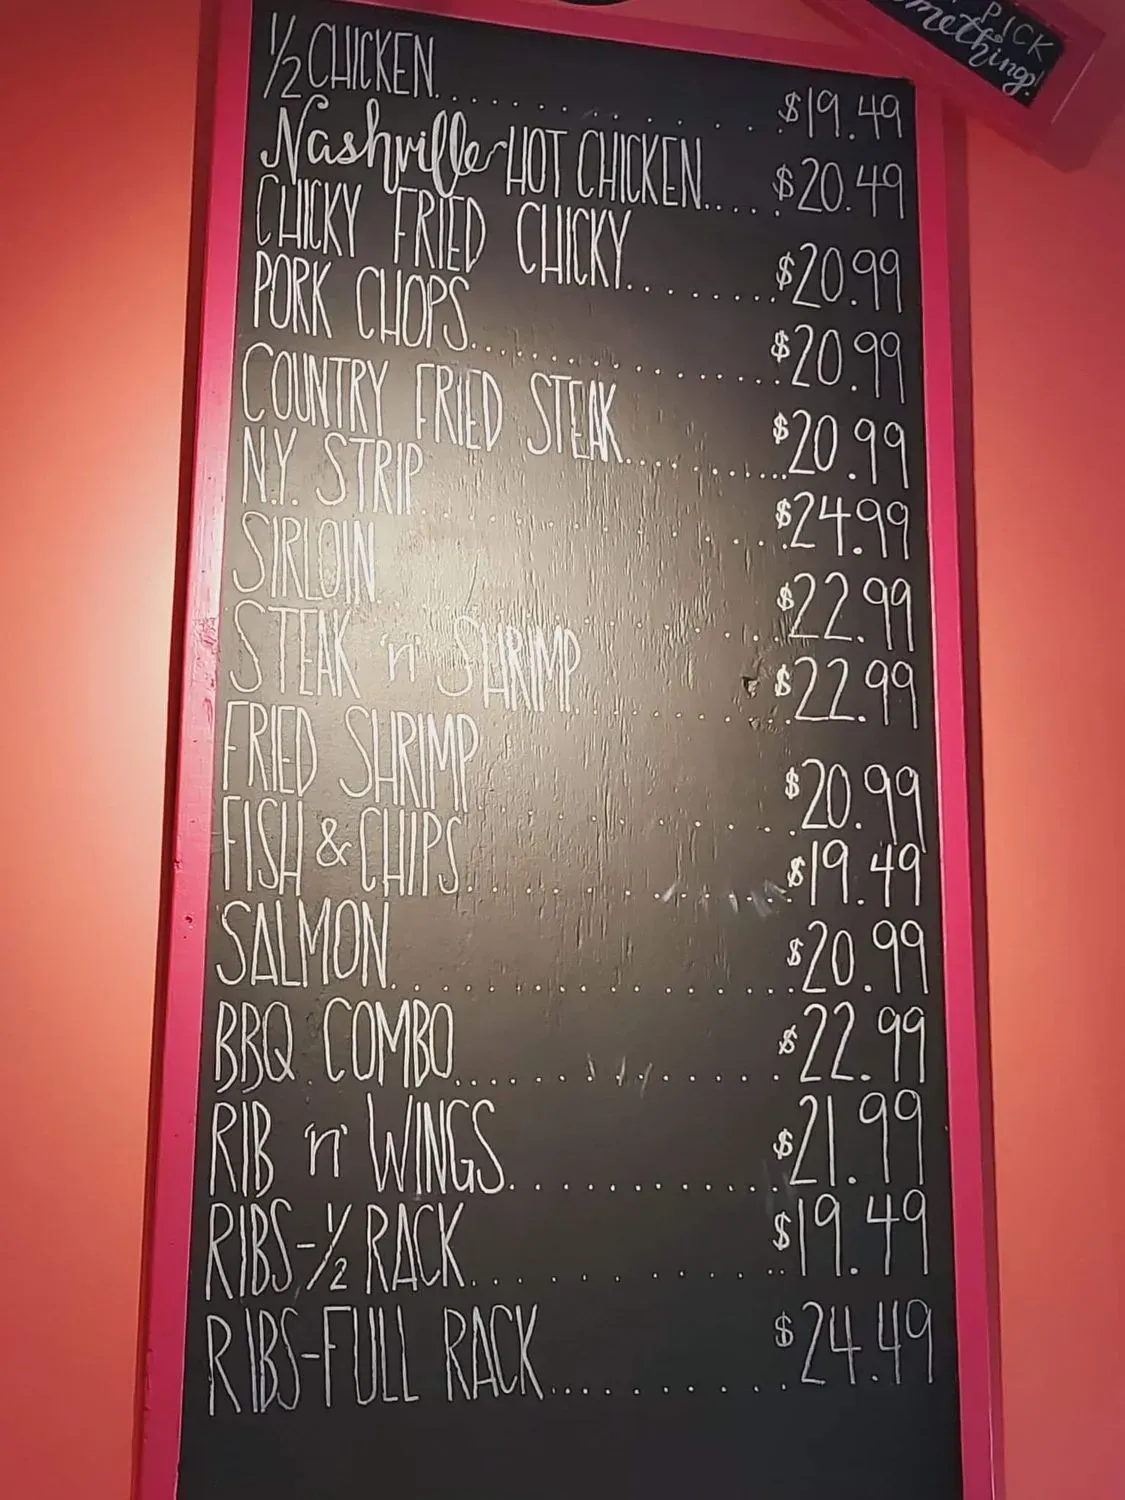 PICK
mething!
1/2 CHICKEN.......... $19.49
Nashville HOT CHICKEN..... $20.49
CHICKY FRIED CHICKY........ $20.99
PORK CHOPS............... $20.99
COUNTRY FRIED STEAK.......... $20.99
N.Y. STRIP............ $24.99
SIRLOIN............ $22.99
STEAK 'n' SHRIMP.......... $22.99
FRIED SHRIMP.......... $20.99
FISH & CHIPS............ $19.49
SALMON................ $20.99
BBQ COMBO............. $22.99
RIB 'n' WINGS............ $21.99
RIBS-1/2 RACK............ $19.49
RIBS-FULL RACK............ $24.49